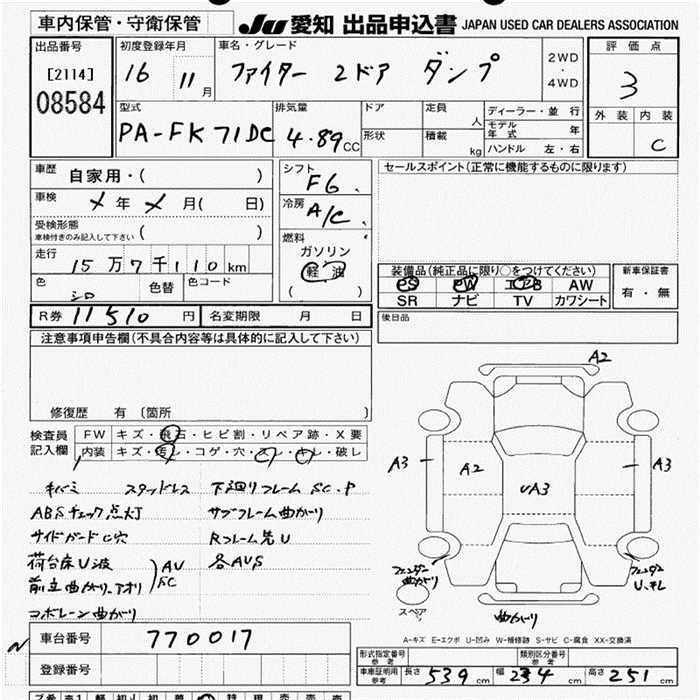 車内保管・守衛保管
JU 愛知 出品申込書 JAPAN USED CAR DEALERS ASSOCIATION
出品番号
[2114]
08584
初度登録年月
16 11 月
車名・グレード
ファイター 2ドア ダンプ
2WD
・
4WD
評価点
3
外装 内装
C
型式
PA-FK71DC
排気量
4.89 CC
ドア
形状
定員
人
積載
kg
ディーラー・並行
モデル年式 年
ハンドル 左・右
車歴
自家用・( )
車検
メ 年 メ 月( 日)
受検形態
車検付きのみ記入して下さい ( )
走行
15万7千110km
色
シロ
色替
色コード
シフト
F6
冷房
A/C
燃料
ガソリン
軽油
( )
セールスポイント(正常に機能するものに限ります)
装備品(純正品に限り○をつけてください)
PS PW エアB AW
SR ナビ TV カワシート
新車保証書
有・無
後日品
R券 11510 円
名変期限 月 日
注意事項申告欄(不具合内容等は具体的に記入して下さい)
修復歴 有 〔箇所 〕
検査員
記入欄
FW キズ・飛石・ヒビ割・リペア跡・X要
内装 キズ・汚レ・コゲ・穴・スレ・キレ・破レ
キバミ スタッドレス 下廻りフレーム SC.P
ABSチェック点灯 サブフレーム曲がり
サイドガードC穴 Rフレーム先U
荷台床U波 AU 各AUS
前立曲がり.アオリ SC
コボレーン曲がり
A2
A3
A2
UA3
A3
フェンダー
曲がり
フェンダー
U、キレ
スペア
曲がり
A-キズ E-エクボ U-凹み W-補修跡 S-サビ C-腐食 XX-交換済
車台番号 770017
登録番号
形式指定番号
参考
類別区分番号
参考
車庫証明用
参考
長さ 539 cm 幅 234 cm 高さ 251 cm